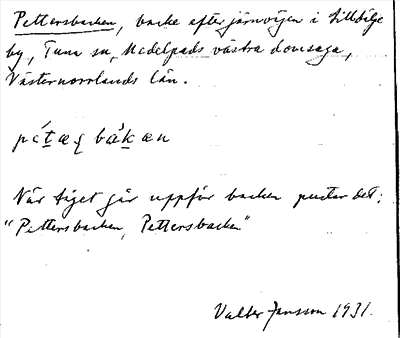 Pettersbacken, backe efter järnvägen i Lillbälge
by, Tuna sn, Medelpads västra domsaga,
Västernorrlands län.
När tåget går uppför backen pustar det:
"Pettersbacken, Pettersbacken"
Valter Jansson 1931.